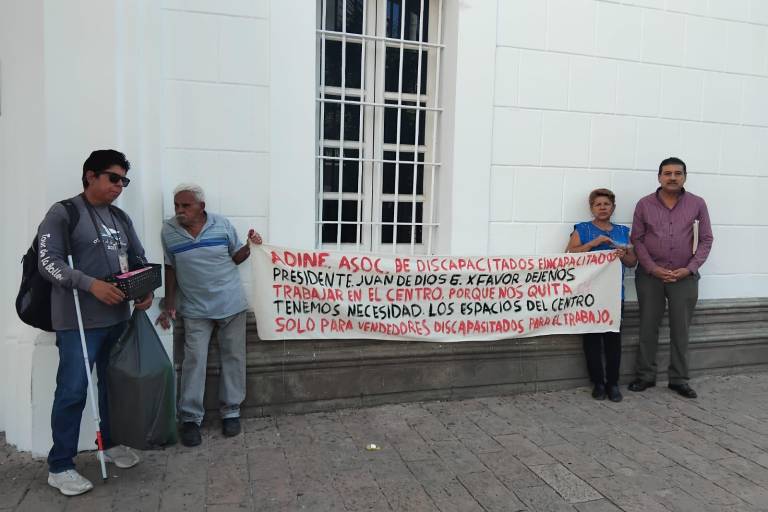 ADINE. ASOC. BE DISCAPACITADOS EINCAPACITADOS
PRESIDENTE. JUAN DE DIOS E. XFAVOR DEJENOS
TRABAJAR EN EL CENTRO. PORQUE NOS QUITA
TENEMOS NECESIDAD. LOS ESPACIOS DEL CENTRO
SOLO PARA VENDEDORES DISCAPASITADOS PARA EL TRABAJO.